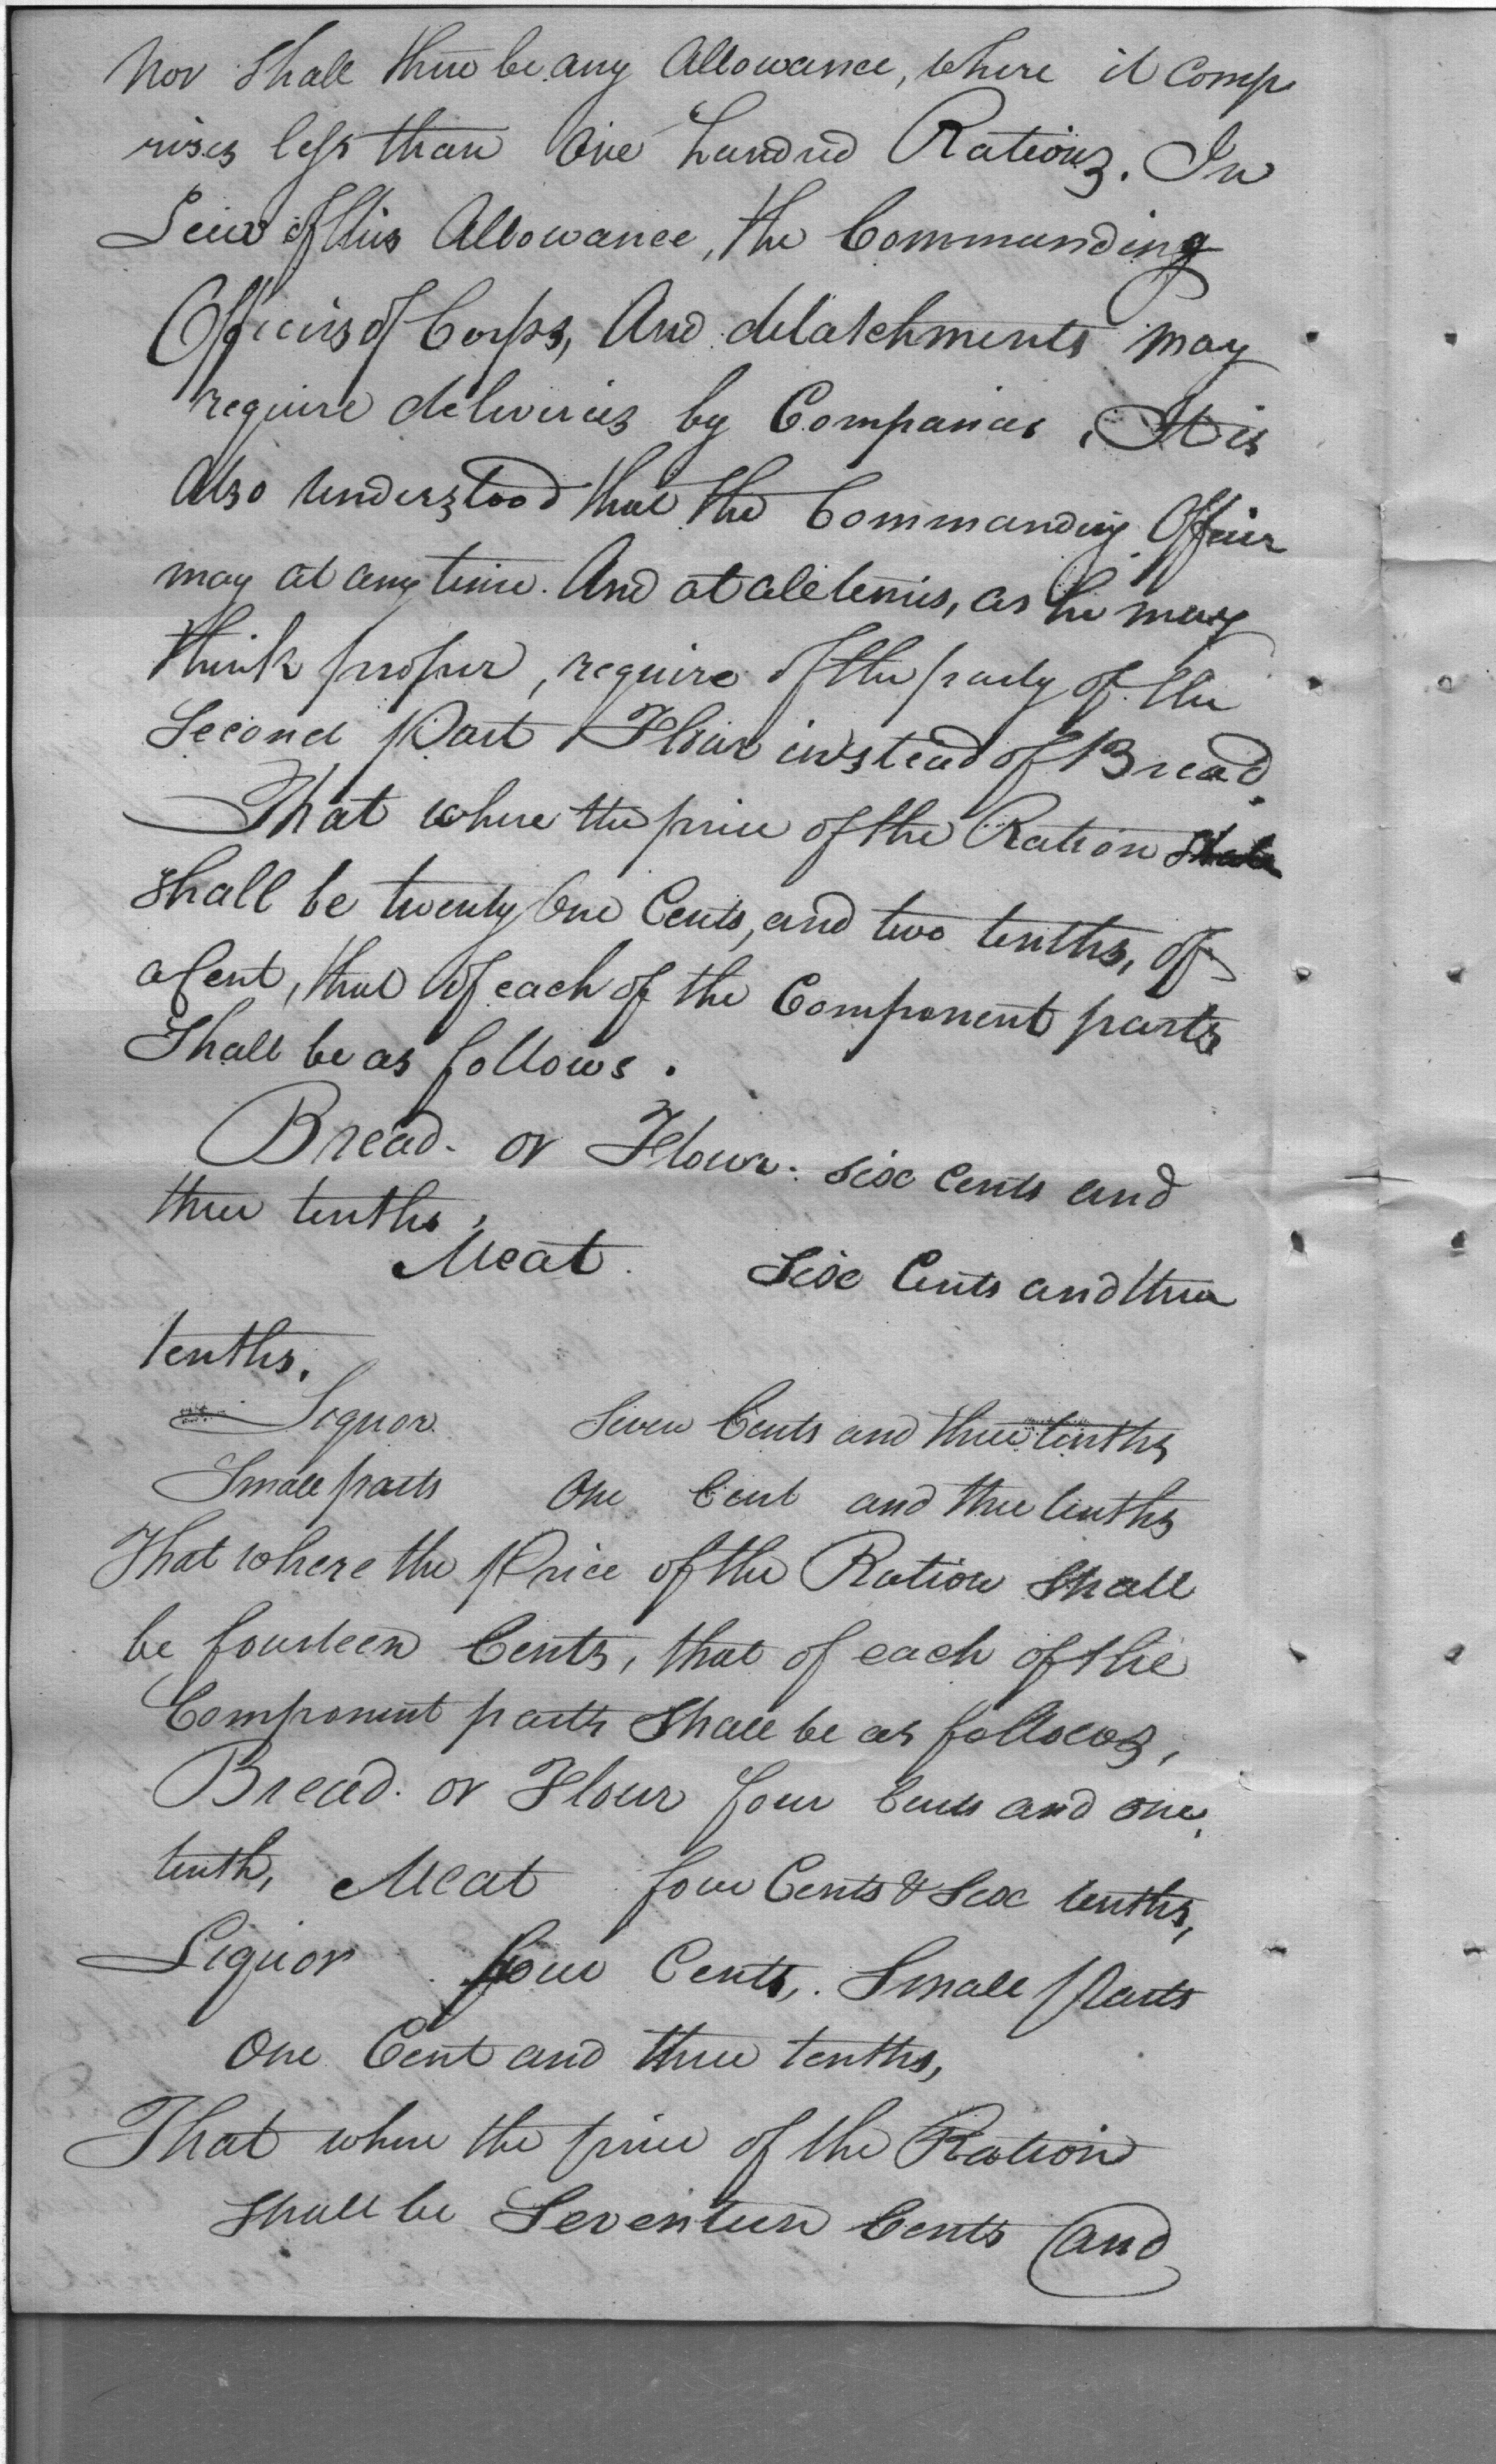 Nor Shall there be any Allowance, where it comp
rises less than One hundred Rations. In
Leiu of this Allowance, the Commanding
Officers of Corps, And detatchments may
require deliveries by Companies, It is
Also Understood that the Commanding Officer
may at any time. And at all times, as he may
think proper, require of the party of the
Second Part Flour instead of Bread.
That where the price of the Ration shall
shall be twenty One Cents, and two tenths, of
a Cent, that of each of the Component parts
Shall be as follows.
Bread. or Flour. Six Cents and
three tenths,
Meat. Six Cents and three
tenths.
Liquor Seven Cents and three tenths
Small parts One Cent and three tenths
That where the Price of the Ration Shall
be fourteen Cents, that of each of the
Component parts Shall be as follows,
Bread. or Flour four Cents and one
tenth, Meat four Cents & Six tenths,
Liquor four Cents,. Small Parts
One Cent and three tenths,
That where the price of the Ration
Shall be Seventeen Cents and